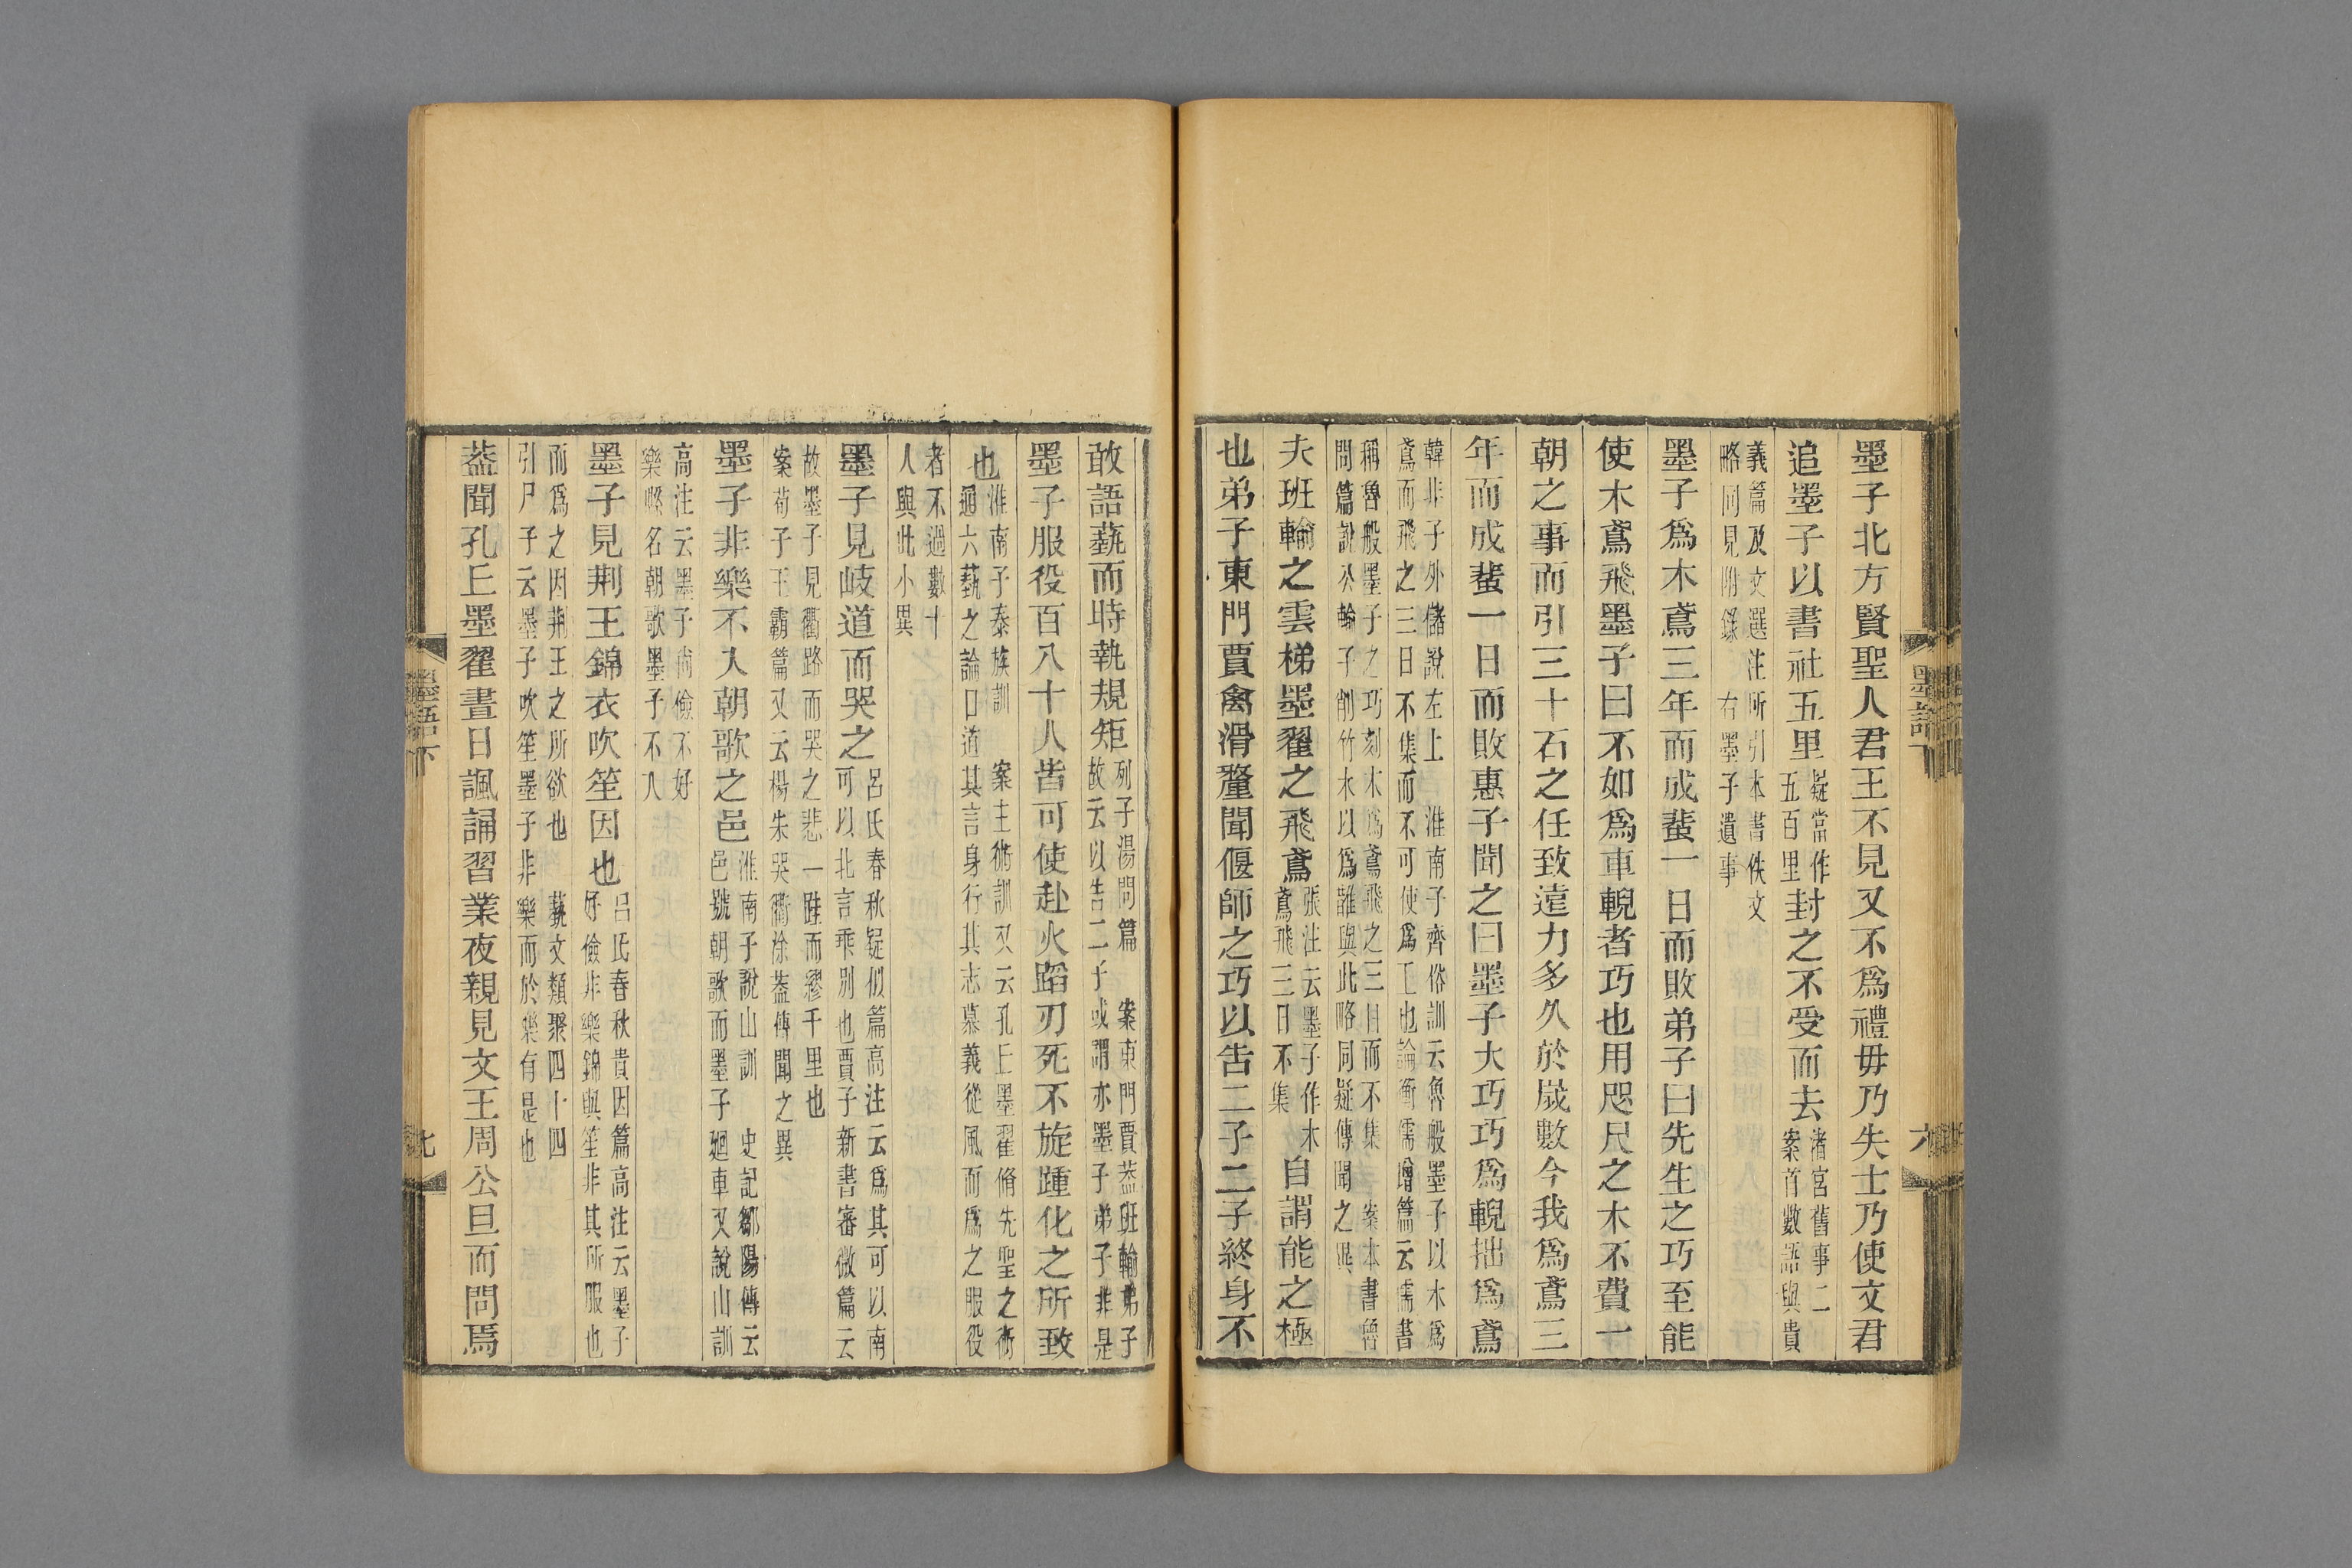 墨子北方賢聖人君王不見又不爲禮毋乃失士乃使文君
追墨子以書社五里疑當作五百里封之不受而去渚宮舊事二案首數語與貴
義篇及文選注所引本書佚文略同見附錄右墨子遺事
墨子爲木鳶三年而成蜚一日而敗弟子曰先生之巧至能
使木鳶飛墨子曰不如爲車輗者巧也用咫尺之木不費一
朝之事而引三十石之任致遠力多久於歲數今我爲鳶三
年而成蜚一日而敗惠子聞之曰墨子大巧巧爲輗拙爲鳶
韓非子外儲說左上淮南子齊俗訓云魯般墨子以木爲鳶而飛之三日不集而不可使爲工也論衡儒增篇云儒書
稱魯般墨子之巧刻木爲鳶飛之三日而不集案本書魯問篇說公輸子削竹木以爲䧿與此略同疑傳聞之異
夫班輸之雲梯墨翟之飛鳶張注云墨子作木鳶飛三日不集自謂能之極
也弟子東門賈禽滑釐聞偃師之巧以告二子二子終身不
墨語下
六
敢語藝而時執規矩列子湯問篇案東門賈蓋班輸弟子故云以告二子或謂亦墨子弟子非是
墨子服役百八十人皆可使赴火蹈刃死不旋踵化之所致
也淮南子泰族訓案主術訓又云孔丘墨翟脩先聖之術通六藝之論口道其言身行其志慕義從風而爲之服役
者不過數十人與此小異
墨子見岐道而哭之呂氏春秋疑似篇高注云爲其可以南可以北言乖別也賈子新書審微篇云
故墨子見衢路而哭之悲一跬而繆千里也案荀子王霸篇又云楊朱哭衢涂蓋傳聞之異
墨子非樂不入朝歌之邑淮南子說山訓史記鄒陽傳云邑號朝歌而墨子廻車又說山訓
高注云墨子尚儉不好樂縣名朝歌墨子不入
墨子見荆王錦衣吹笙因也呂氏春秋貴因篇高注云墨子好儉非樂錦與笙非其所服也
而爲之因荆王之所欲也藝文類聚四十四引尸子云墨子吹笙墨子非樂而於樂有是也
葢聞孔丘墨翟晝日諷誦習業夜親見文王周公旦而問焉
墨語下
七